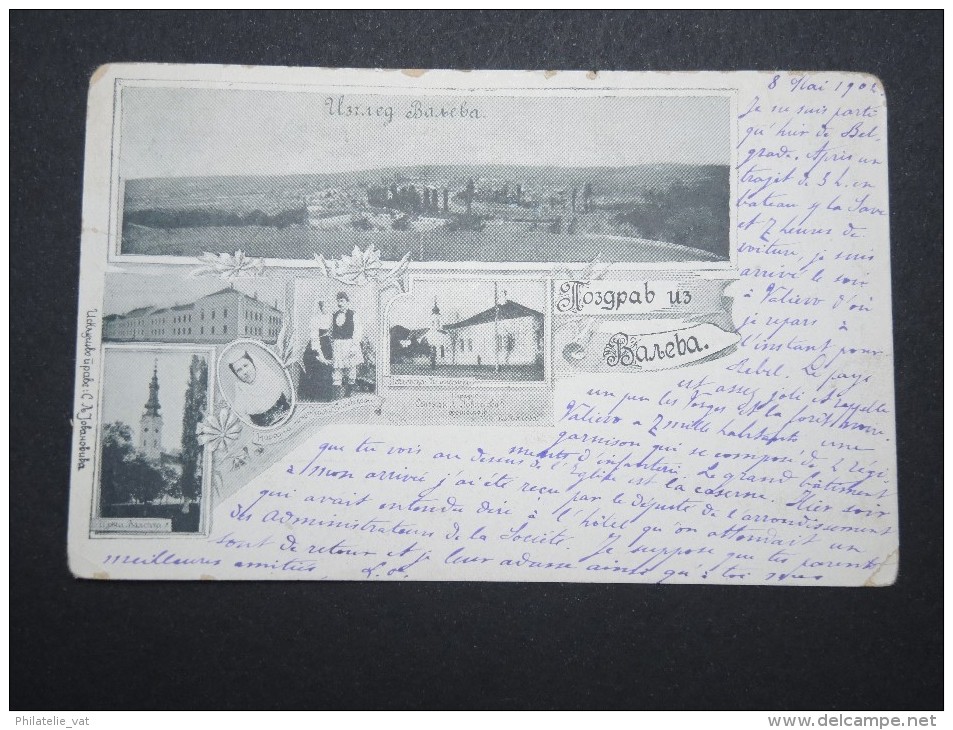 Изглед Ваљева.
Поздрав из
Ваљева.
8 Mai 1902
Je ne suis parti
qu'hier de Bel-
grade. Après un
trajet de 3 h. en
bateau s/ la Save
et 7 heures de
voiture, je suis
arrivé le soir
à Valievo d'où
je repars à
l'instant pour
Rebel. Le pays
est assez joli et rappelle
un peu les Vosges
Valievo a 7 mille habitants une
garnison qui se compose de 2 régi-
ments d'infanterie. Le grand bâtiment
que tu vois au dessus de l'Eglise est la caserne. Hier soir
à mon arrivé j'ai été reçu par le député de l'arrondissement
qui avait entendu dire à l'hôtel qu'on attendait un
des administrateurs de la Société. Je suppose que tes parents
sont de retour et je leur adresse ainsi qu'à toi mes
meilleures amitiés
Philatelie_vat
www.delcampe.net